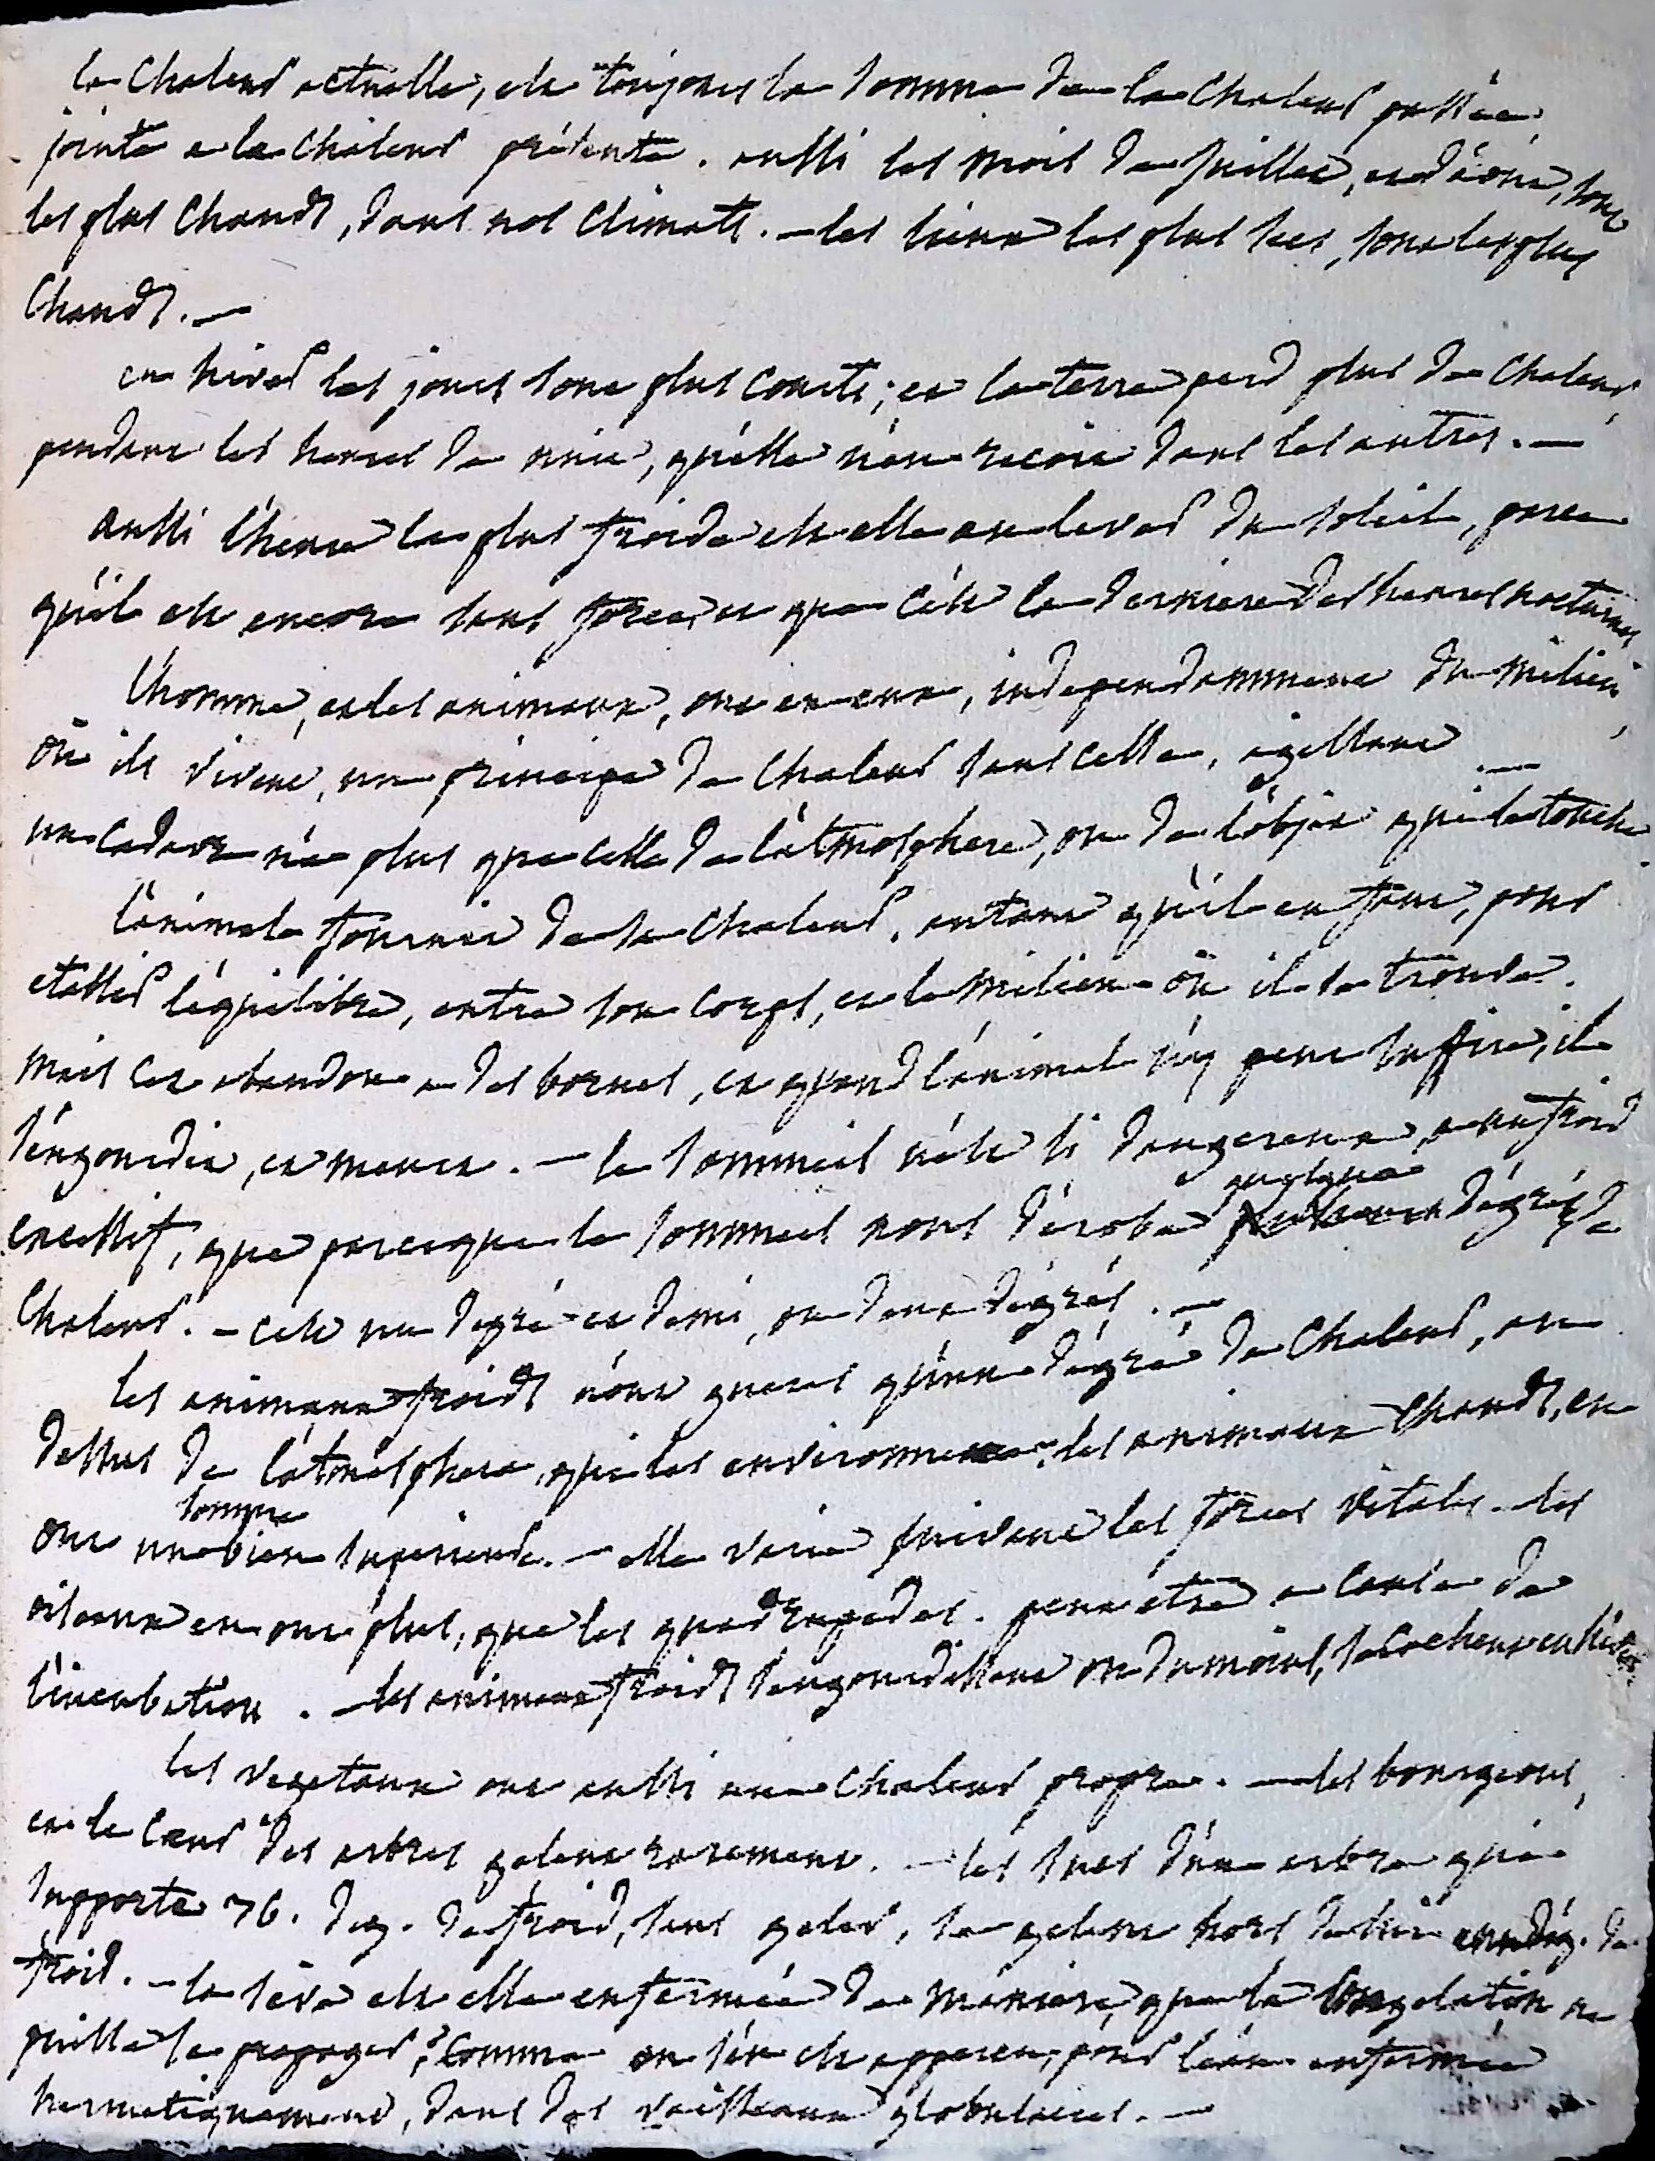 la chaleur actuelle, est toujours la somme de la chaleur passée,
jointe a la chaleur présente. aussi les mois de juillet, et d'aout, sont
les plus chauds, dans nos climats. — les lieux les plus secs, sont les plus
chauds. —
en hiver les jours sont plus courts; et la terre perd plus de chaleur,
pendant les heures de nuit, qu'elle n'en recoit dans les autres. —
aussi l'heure la plus froide est elle au lever du soleil, parce
qu'il est encore sans force, et que c'est la derniere des heures nocturnes
l'homme, et les animaux, ont en eux, independamment du milieu,
où ils vivent, un principe de chaleur sans cesse, agissant. —
un cadavre n'a plus que celle de l'atmosphere, ou de l'objet qui le touche.
l'animal fournit de sa chaleur, autant qu'il en faut, pour
etablir l'equilibre, entre son corps, et le milieu où il se trouve.
mais cet abandon a des bornes, et quand l'animal n'y peut suffire, il
s'engourdit, et meurt. — le sommeil n'est si dangereux, a un froid
excessif, que parceque le sommeil nous dérobe quelques dégrés de
chaleur. — c'est un degré et demi, ou deux dégrés. —
les animaux froids n'ont gueres qu'un dégré de chaleur, au
dessus de l'atmosphere, qui les environne. les animaux chauds, en
ont une somme bien superieure. — elle varie suivant les forces vitales. les
oiseaux en ont plus, que les quadrupedes. peut etre a cause de
l'incubation. — les animaux froids s'engourdissent ou du moins, se cachent en hiver.
les vegetaux ont aussi une chaleur propre. — les bourgeons,
et le coeur des arbres gelent rarement. — les sucs d'un arbre qui
supporte 76. deg. de froid, sans geler, se gelent hors de lui deg. de
froid. — la séve est elle enfermée de maniere, que la congelation ne
puisse se propager? comme on s'en est apperçu, pour l'eau enfermée
hermetiquement, dans des vaisseaux globulaires. —